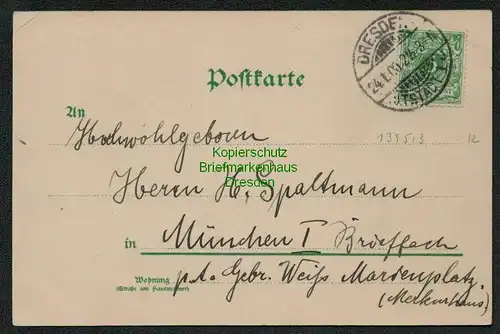 DRESDEN
ALTSTADT 1
Postkarte
An
Hochwohlgeboren
Kopierschutz
Briefmarkenhaus
Dresden
Herrn H. Spaltmann
in München I Brieffach
Wohnung p. A. Gebr. Weiß Marienplatz
(Straße und Hausnummer)
(Merkurhaus)
12